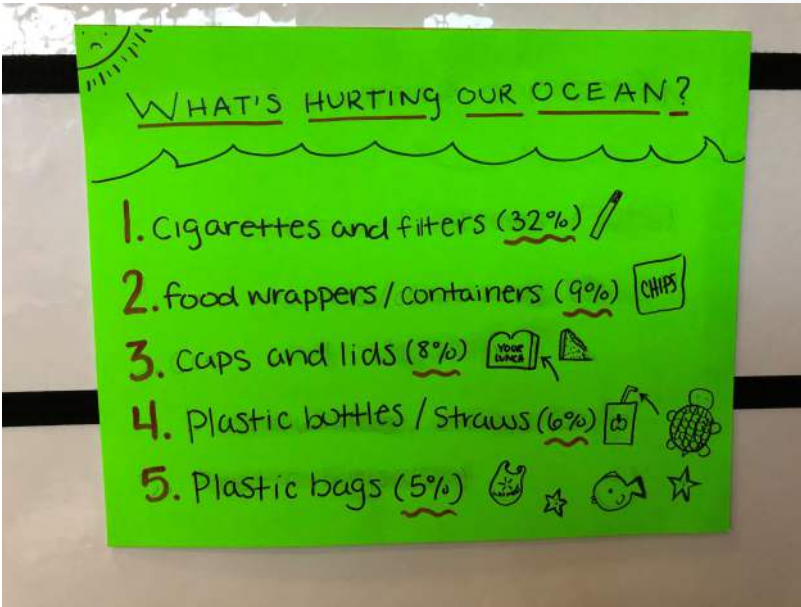 WHAT'S HURTING OUR OCEAN?
1. Cigarettes and filters (32%)
2. food wrappers/containers (9%) CHIPS
3. caps and lids (8%) YOUR LUNCH
4. Plastic bottles / straws (6%)
5. Plastic bags (5%)